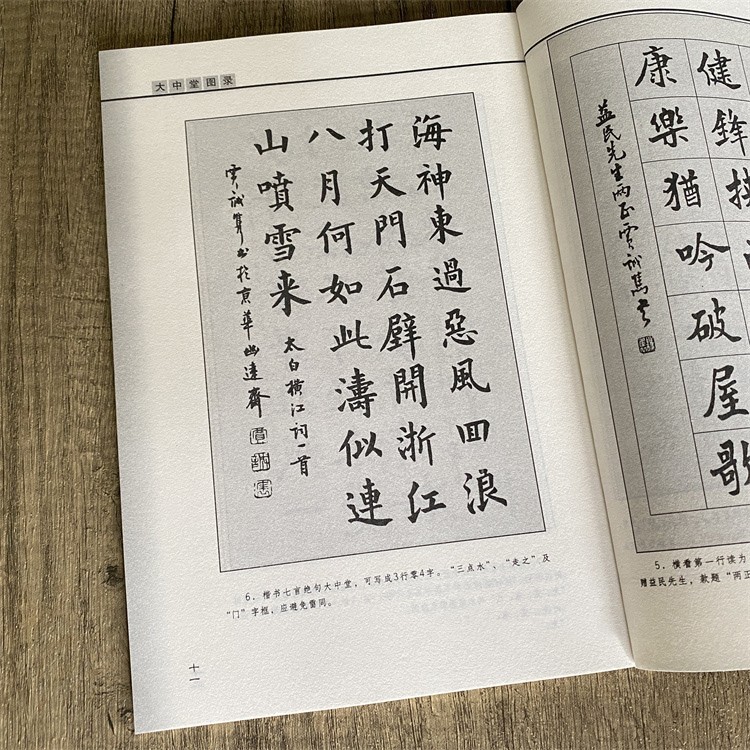 大中堂图录
海神東過惡風回浪
打天門石壁開浙江
八月何如此濤似連
山噴雪来
太白横江词一首
书於京華幽遠齋
6．楷书七言绝句大中堂，可写成3行零4字。“三点水”、“走之”及
“门”字框，应避免雷同。
十一
健鋒
康樂猶吟破屋歌
益民先生两正
5．横看第一行读为
赠益民先生，款题“两正